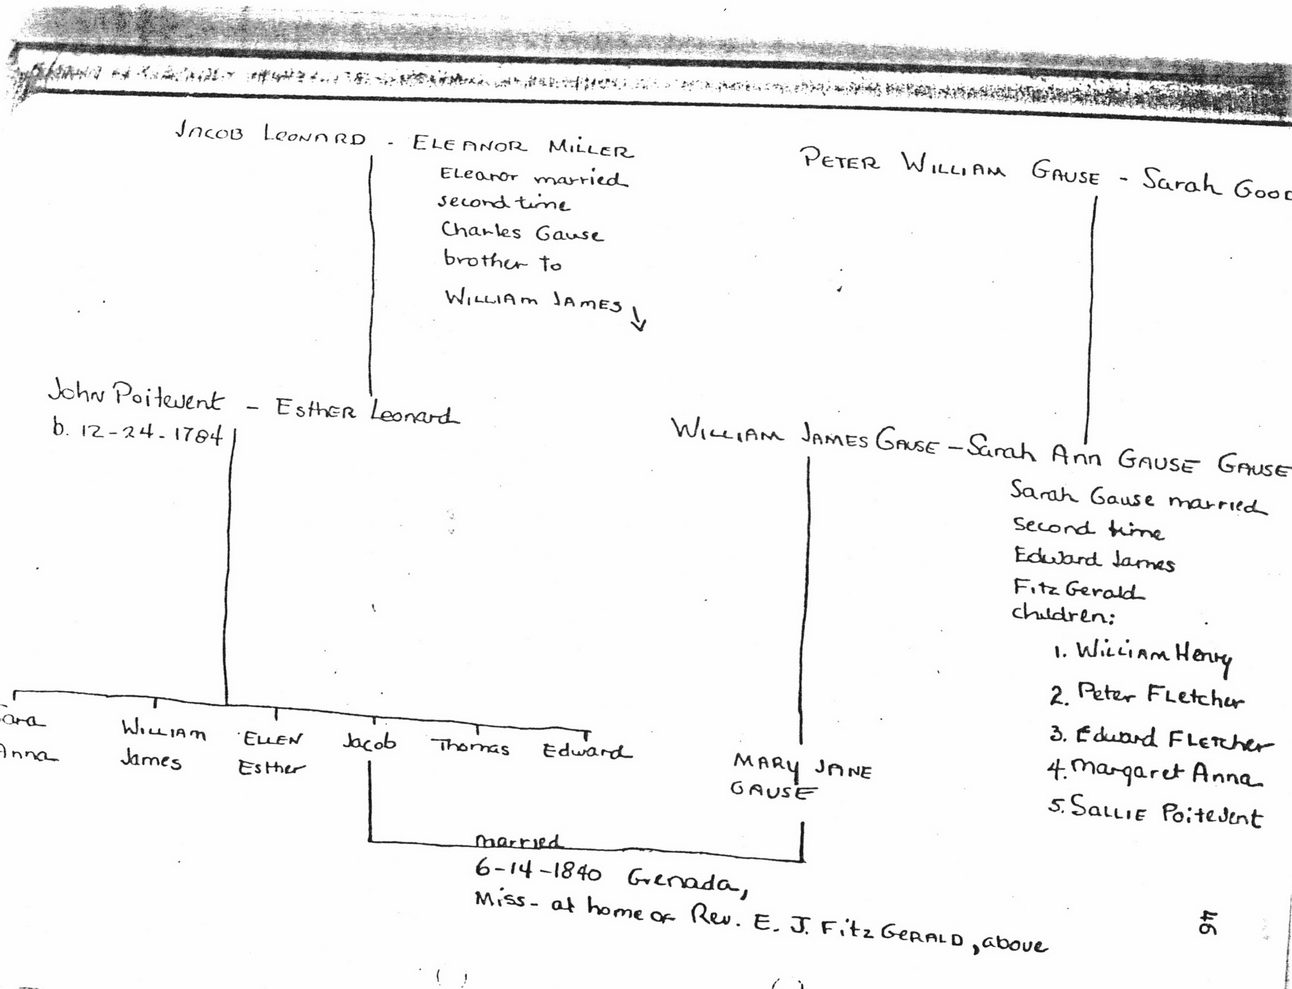 JACOB LEONARD - ELEANOR MILLER
Eleanor married
second time
Charles Gause
brother to
WILLIAM JAMES
PETER WILLIAM GAUSE - Sarah
John Poitevent - ESTHER Leonard
b. 12-24-1784
WILLIAM JAMES GAUSE - Sarah Ann GAUSE GAUSE
Sarah Gause married
second time
Edward James
Fitz Gerald
children:
1. William Henry
2. Peter FLetcher
3. Edward FLetcher
4. Margaret Anna
5. SALLIE Poitevent
WILLIAM
James
ELLEN
Esther
Jacob
Thomas
Edward
MARY JANE
GAUSE
married
6-14-1840 Grenada,
Miss- at home of Rev. E. J. Fitz GERALD, above
46